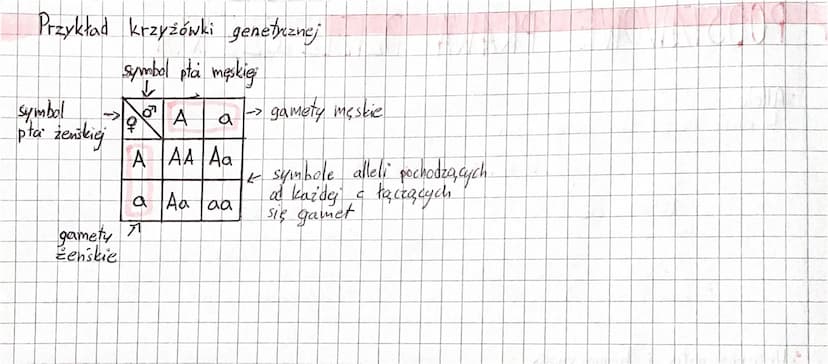 Przykład krzyżówki genetycznej
symbol płci męskiej
symbol
płci żeńskiej
♀ ♂ A a
gamety męskie
A AA Aa
a Aa aa
symbole alleli pochodzących
od każdej z łączących
się gamet
gamety
żeńskie